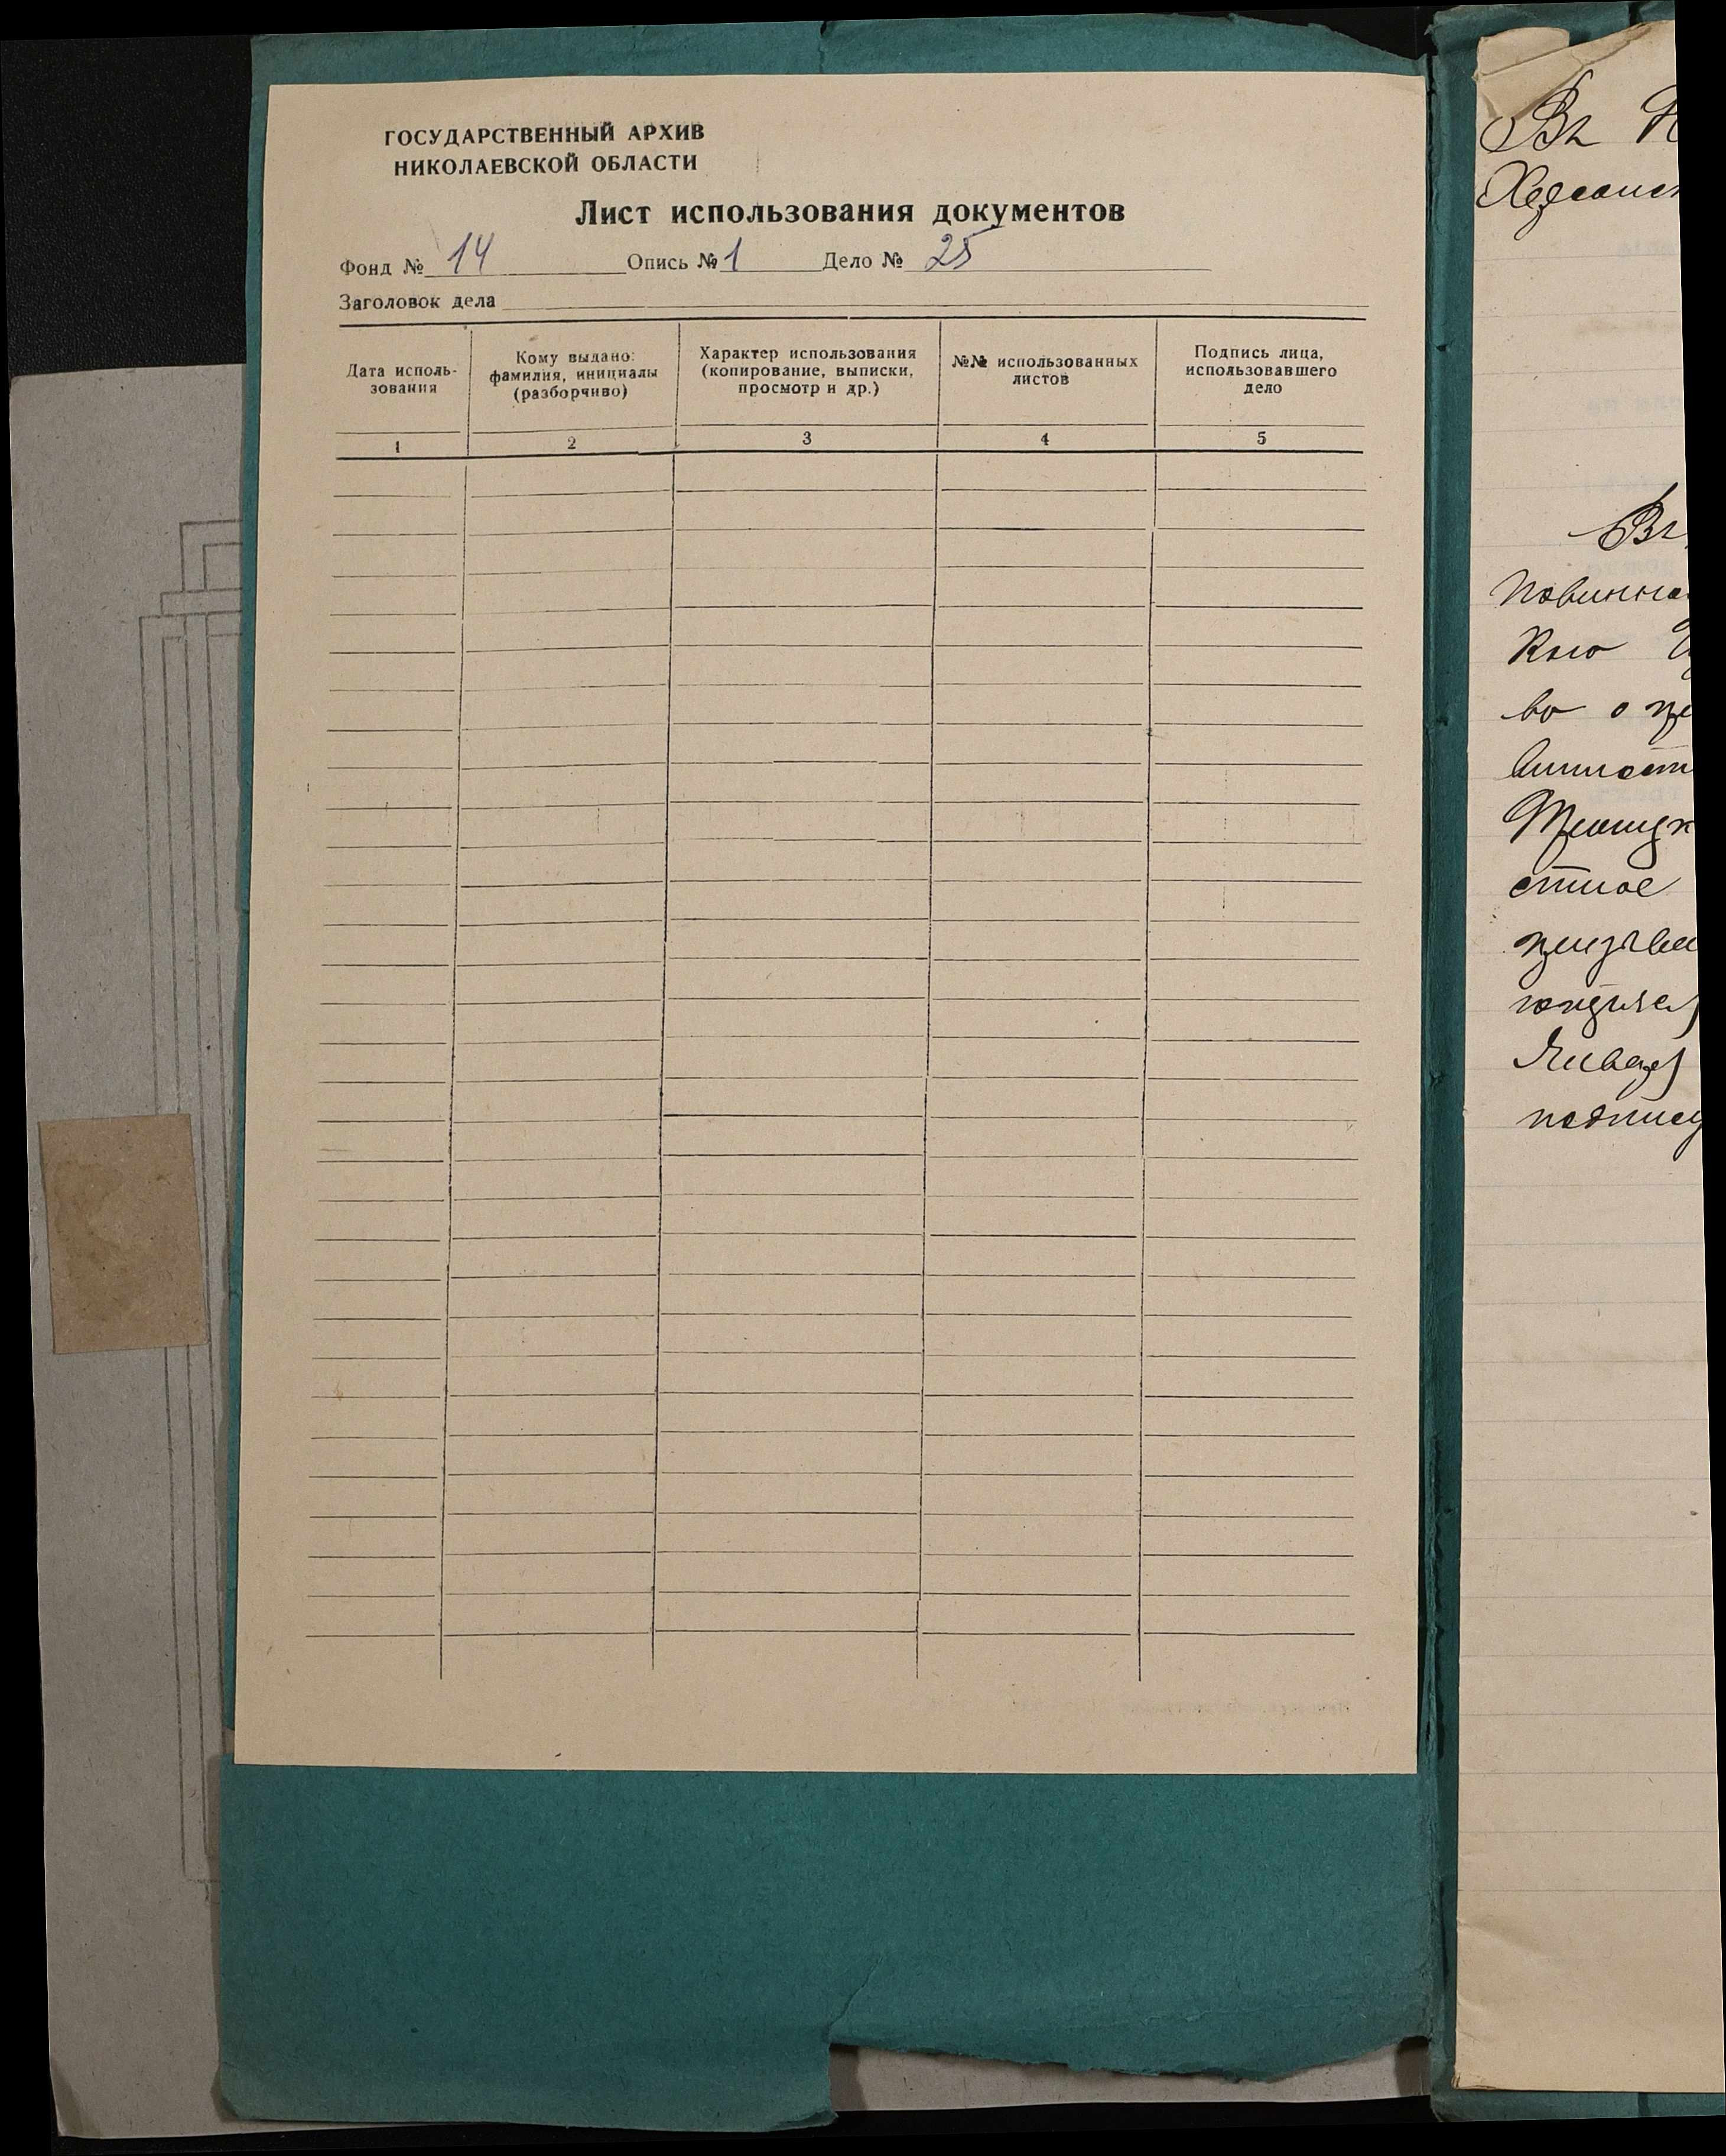 ГОСУДАРСТВЕННЫЙ АРХИВ
НИКОЛАЕВСКОЙ ОБЛАСТИ
Лист использования документов
Фонд № 14 Опись № 1 Дело № 25
Заголовок дела
Дата исполь-
зования
Кому выдано:
фамилия, инициалы
(разборчиво)
Характер использования
(копирование, выписки,
просмотр и др.)
№№ использованных
листов
Подпись лица,
использовавшего
дело
1 2 3 4 5
Въ
Херсонс
Въ
повинно
во о
стное
призыв
Январ
подпису